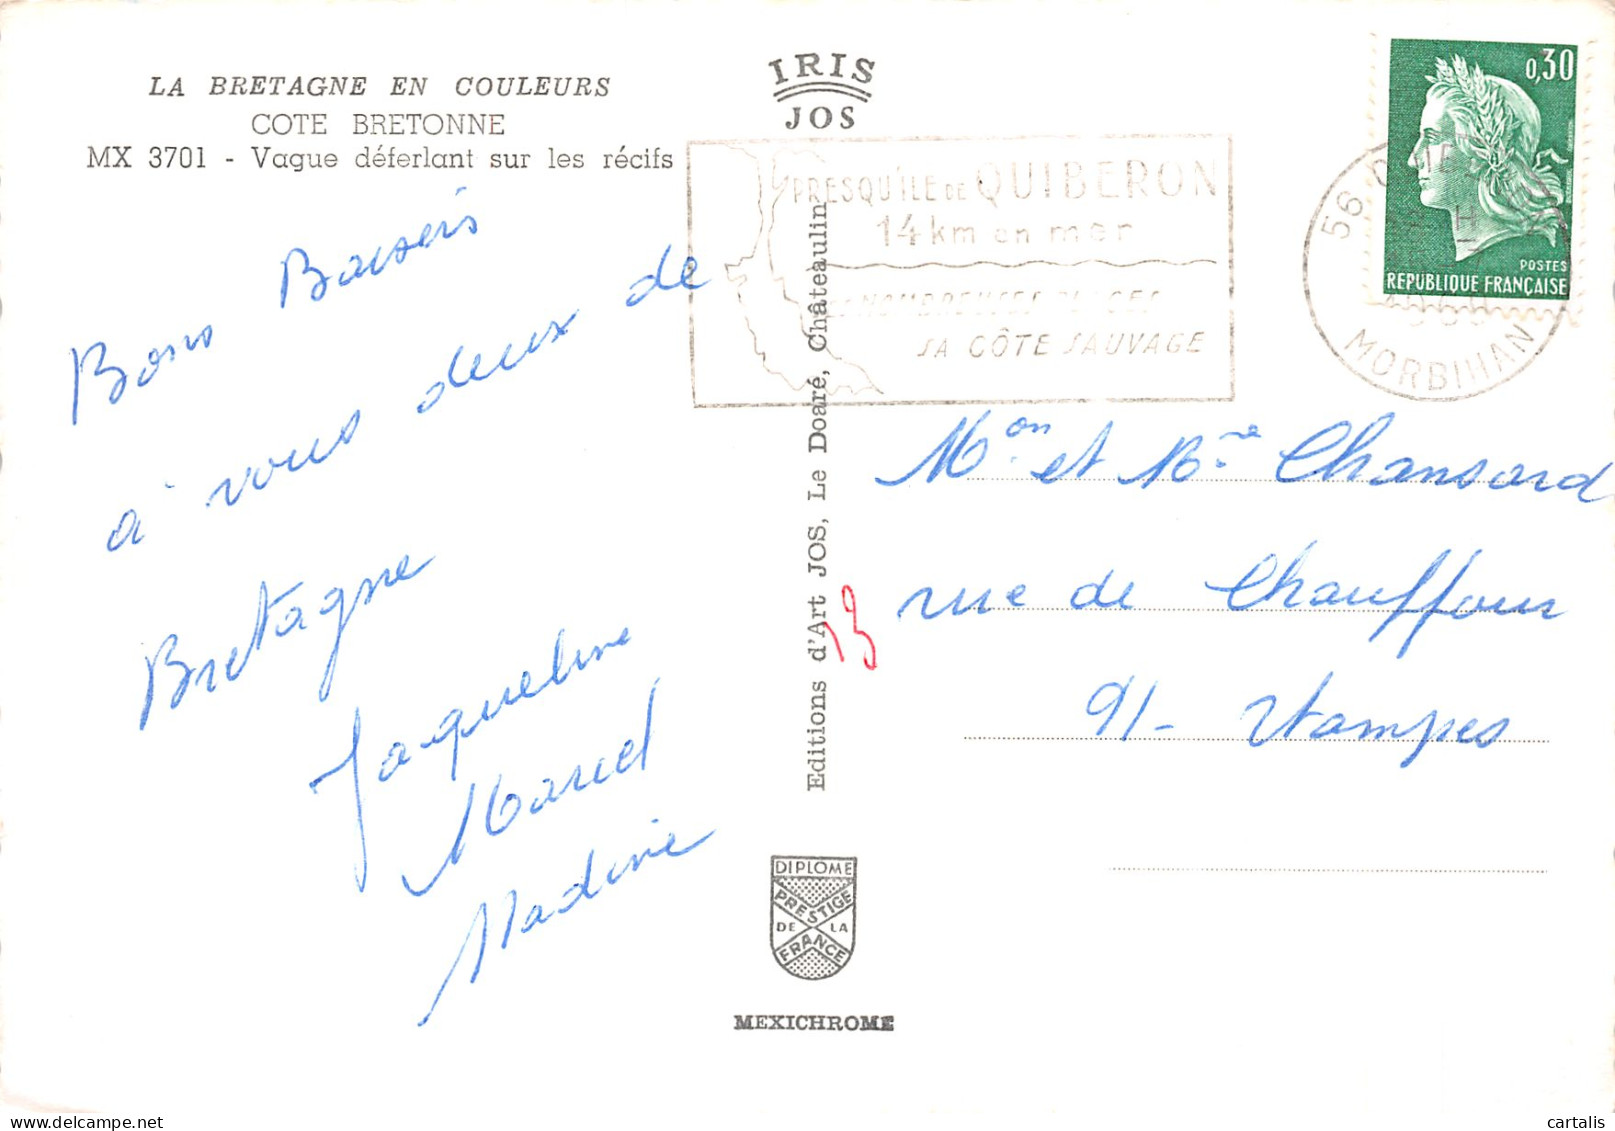 LA BRETAGNE EN COULEURS
COTE BRETONNE
MX 3701 - Vague déferlant sur les récifs
IRIS
JOS
PRESQU'ÎLE DE QUIBERON
14 km en mer
SA CÔTE SAUVAGE
56
MORBIHAN
0,30
POSTES
REPUBLIQUE FRANÇAISE
Bons Baisers
à vous deux de
Bretagne
Jaqueline
Marcel
Nadine
Editions d'Art JOS, Le Doaré, Châteaulin
13
Mon et Me Chansard
rue de Chauffour
91- Etampes
DIPLOME
PRESTIGE
DE LA
FRANCE
MEXICHROME
cartalis